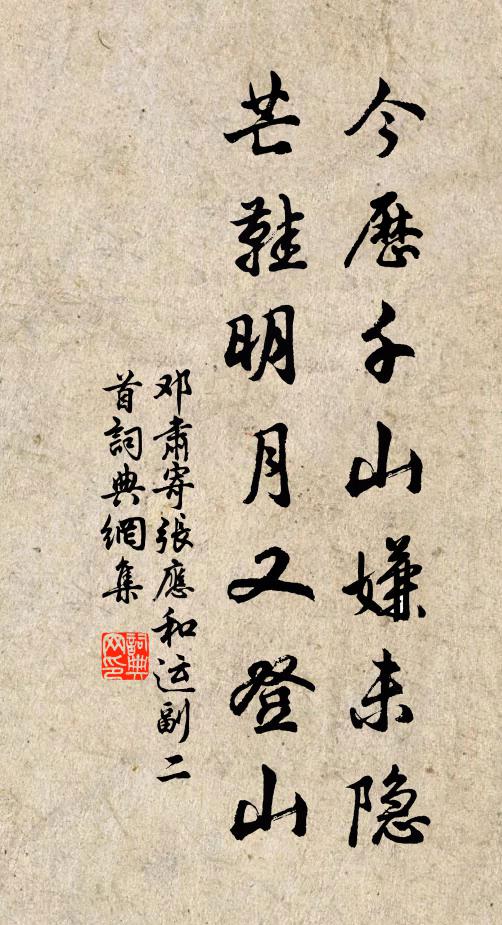 今歷千山嫌未隐
芒鞋明月又登山
邓肃寄張應和运副二
首詞典網集
詞典网印